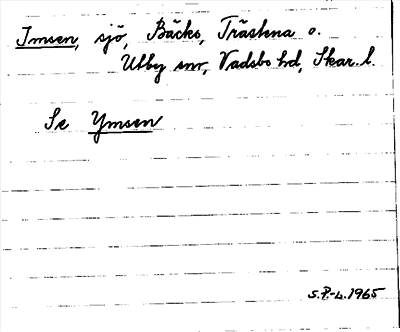 Imsen, sjö, Bäcks, Trästena o.
Utby snr, Vadsbo hd, Skar. l.
Se Ymsen
S.P.-L. 1965